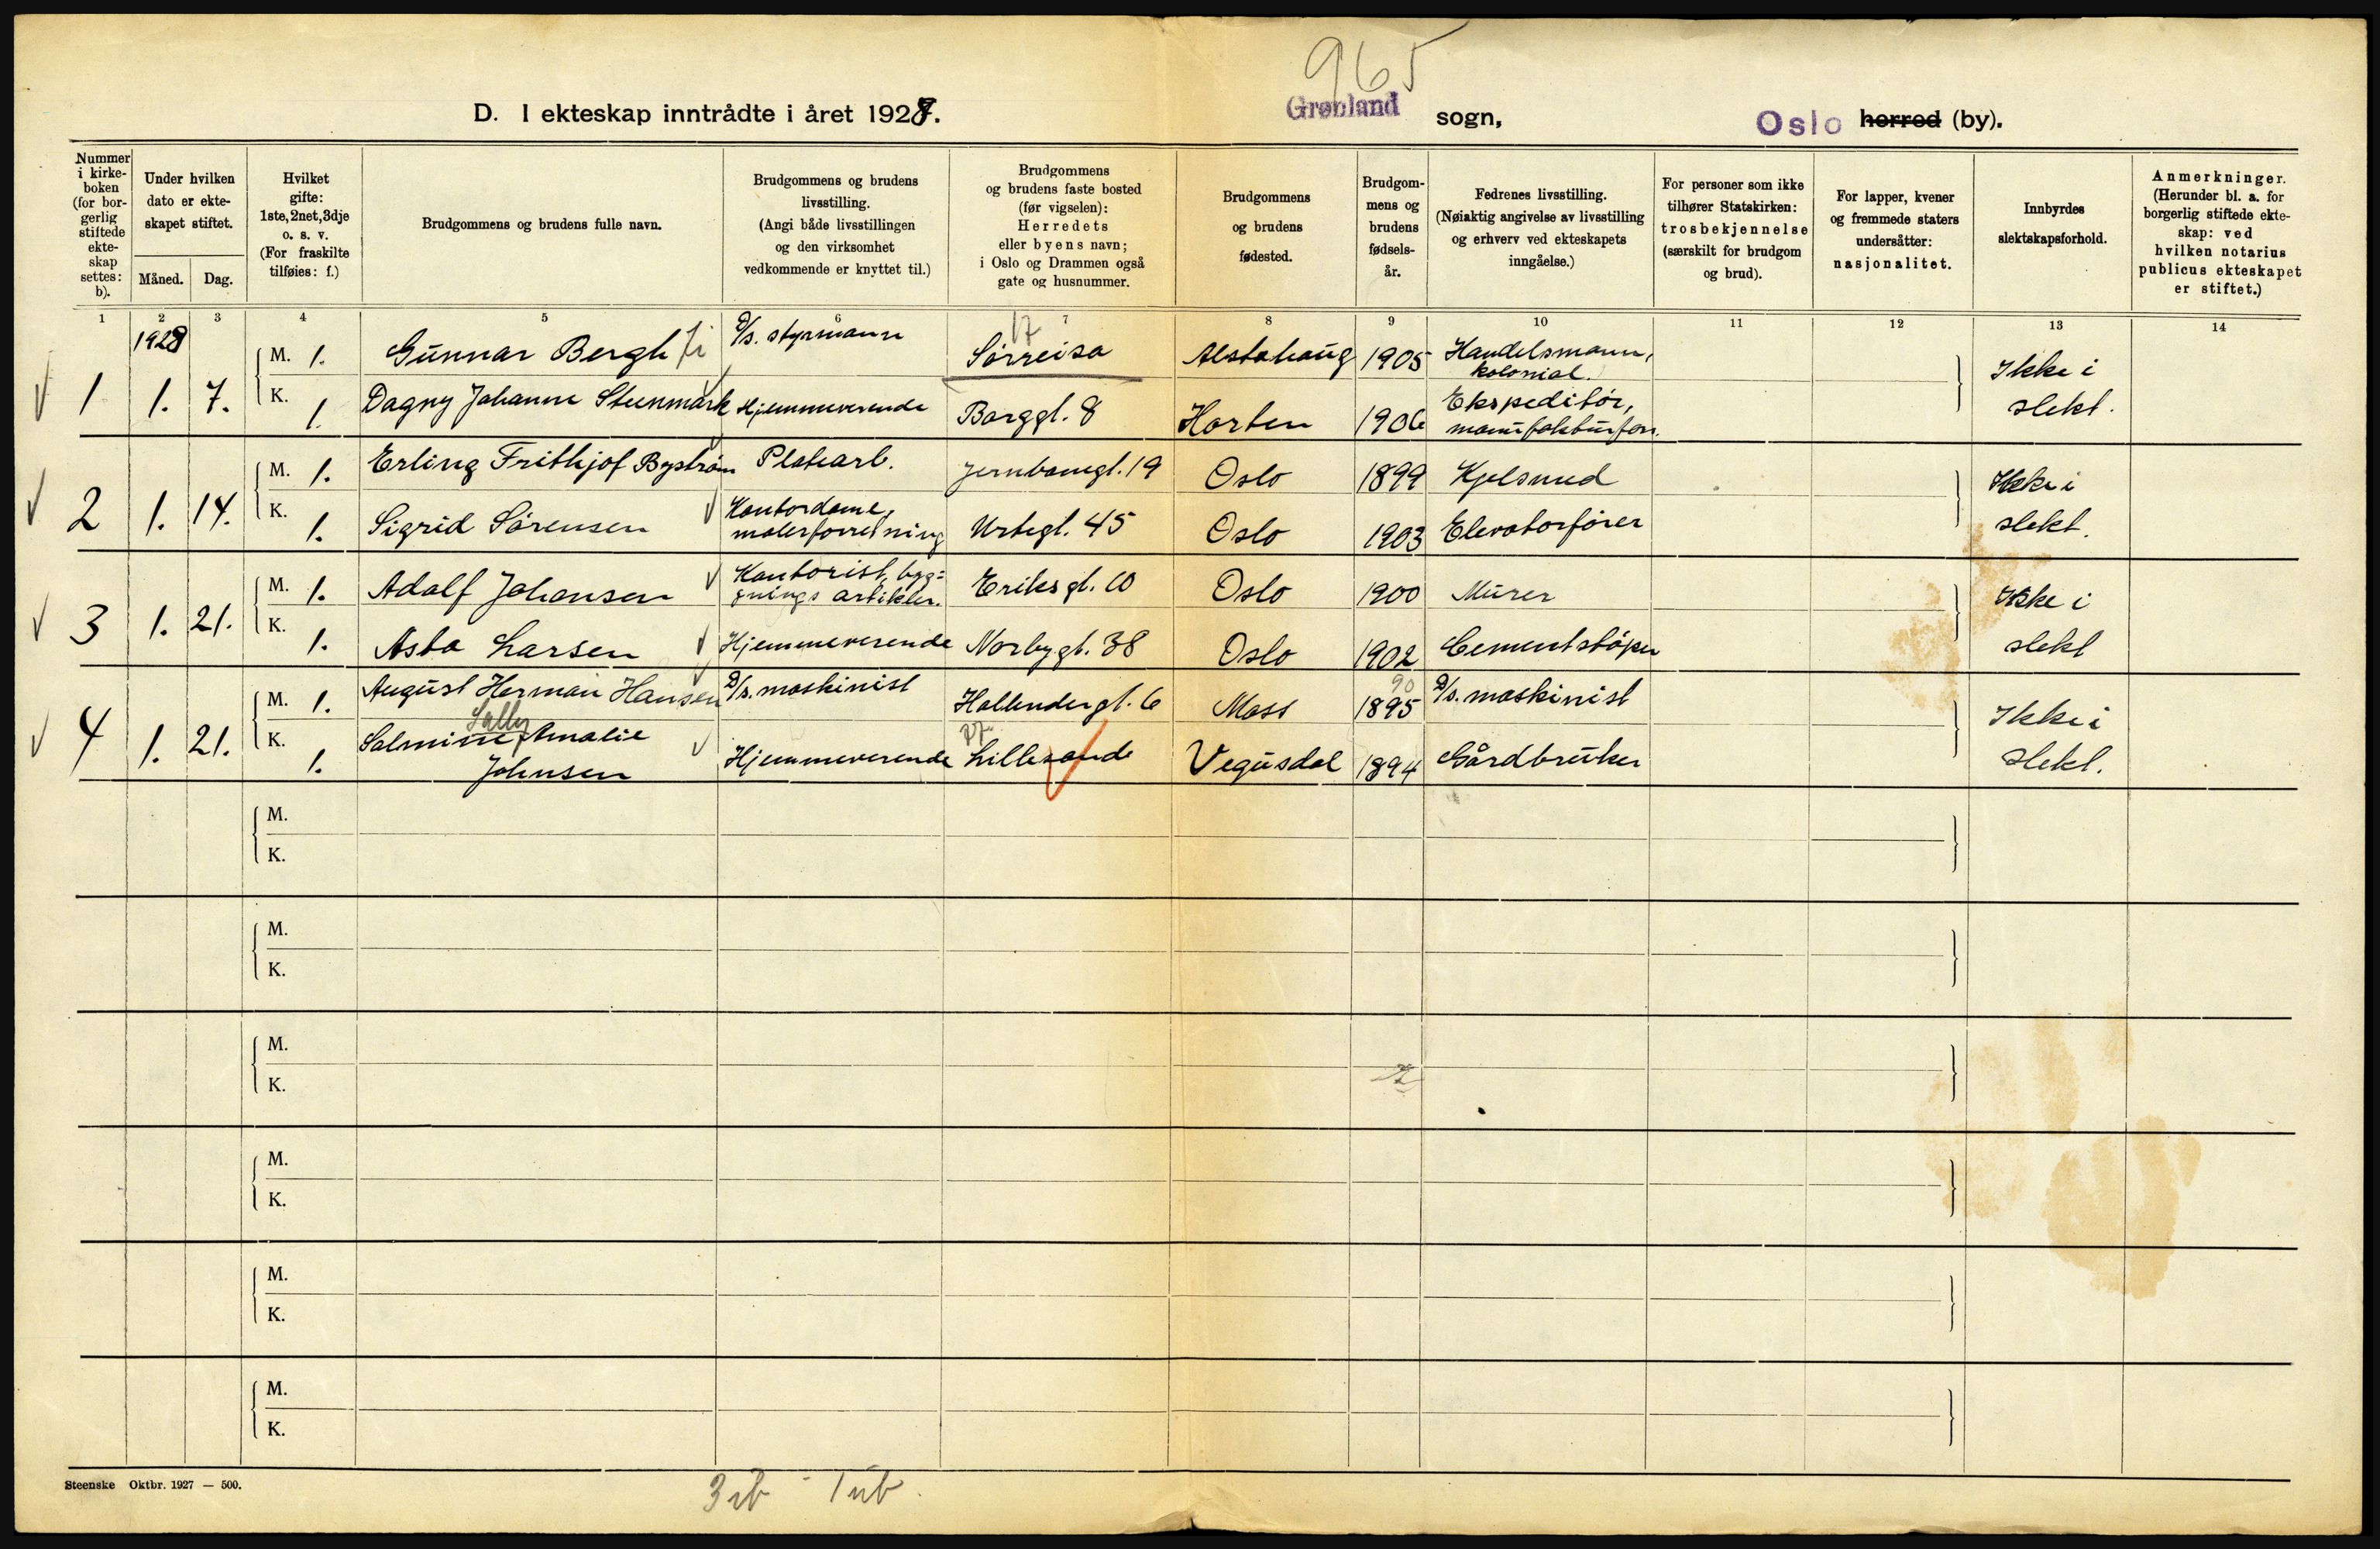 965
D. I ekteskap inntrådte i året 1928.
Grønland sogn,
Oslo herred (by).
Nummer i kirke-boken (for bor-gerlig stiftede ekte-skap settes: b).
Under hvilken dato er ekte-skapet stiftet.
Måned. Dag.
Hvilket gifte: 1ste, 2net, 3dje o. s. v. (For fraskilte tilføies: f.)
Brudgommens og brudens fulle navn.
Brudgommens og brudens livsstilling. (Angi både livsstillingen og den virksomhet vedkommende er knyttet til.)
Brudgommens og brudens faste bosted (før vigselen): Herredets eller byens navn; i Oslo og Drammen også gate og husnummer.
Brudgommens og brudens fødested.
Brudgom-mens og brudens fødsels-år.
Fedrenes livsstilling. (Nøiaktig angivelse av livsstilling og erhverv ved ekteskapets inngåelse.)
For personer som ikke tilhører Statskirken: trosbekjennelse (særskilt for brudgom og brud).
For lapper, kvener og fremmede staters undersåtter: nasjonalitet.
Innbyrdes slektskapsforhold.
Anmerkninger. (Herunder bl. a. for borgerlig stiftede ekte-skap: ved hvilken notarius publicus ekteskapet er stiftet.)
1 2 3 4 5 6 7 8 9 10 11 12 13 14
1928
M. 1. Gunnar Bergh D/s. styrmann 17 Sörreisa Alstahaug 1905 Handelsmann, kolonial.
1 1. 7. Ikke i slekt.
K. 1. Dagny Johanne Steenmark Hjemmeverende Borggt. 8 Horten 1906 Ekspeditör, manufakturforr.
M. 1. Erling Frithjof Byström Platearb. Jernbanegt. 19 Oslo 1899 Kjelsmed
2 1. 14. Ikke i slekt.
K. 1. Sigrid Sörensen Kontordame, malerforretning Urtegt. 45 Oslo 1903 Elevatorförer
M. 1. Adolf Johansen Kontorist, byg=gnings artikler. Eriks gt. 10 Oslo 1900 Murer
3 1. 21. Ikke i slekt
K. 1. Asta Larsen Hjemmeverende Norbygt. 38 Oslo 1902 Cementstöper
M. 1. August Herman Hansen D/s. maskinist Hollendergt. 6 Moss 90 1895 D/s. maskinist
4 1. 21. Ikke i slekt.
K. 1. Sally Salmine Amalie Johnsen Hjemmeverende Lillesande Vegusdal 1894 Gårdbruker
M.
K.
M.
K.
M.
K.
M.
K.
M.
K.
M.
K.
Steenske Oktbr. 1927 — 500.